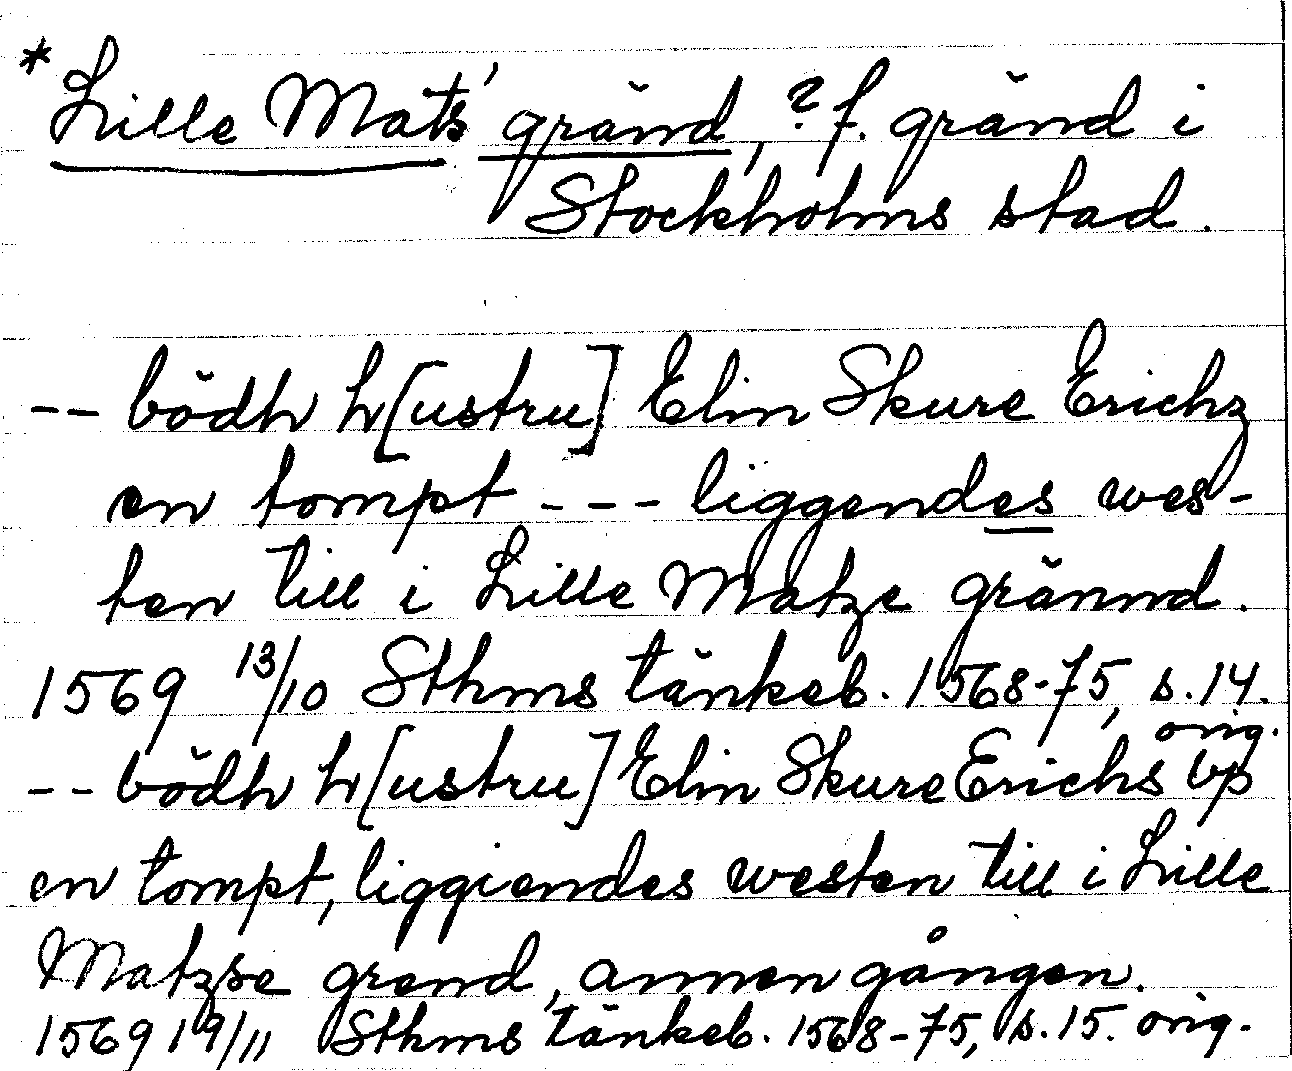 * Lille Mats' gränd, ? f. gränd i
Stockholms stad.
-- bödh h[ustru] Elin Skure Erichz
en tompt --- liggendes wes-
ten till i Lille Matze gränd.
1569 13/10 Sthms tänkeb. 1568-75, s. 14.
orig.
-- bödh h[ustru] Elin Skure Erichs vp
en tompt, liggiendes westen till i Lille
Matzse grend, annen gången.
1569 19/11 Sthms tänkeb. 1568-75, s. 15. orig.